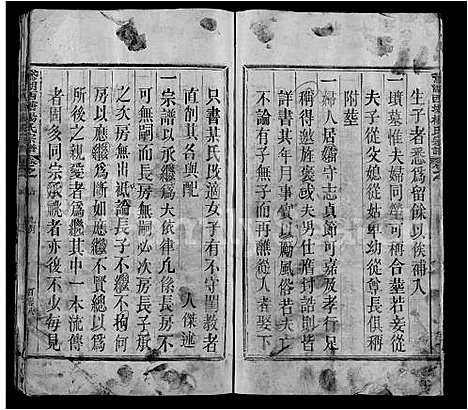 生子者悉爲留餘以俟補入
一墳墓惟夫婦同塋可稱合葬若妾從
夫子從父娘從姑卑幼從尊長俱
附葬
一婦人居孀守志貞節可嘉及孝行足
稱得邀旌褒或夫男仕膺封誥則皆
詳書其年月事實以勵風俗若夫亡
不論有子無子而再醮從人者娶下
只書某氏改適女子有不守閨教者
直削其名與配
一宗譜以承繼爲大依律凡係長房不
可無嗣長房無嗣必次房長子承
之次房無出或論長子不繼不拘何
房以應繼爲斷如應繼不賢總以爲
所後之親愛者爲繼其中一本流傳
者固多同宗承嗣者亦復不少每見
人傑進
西塘楊氏宗譜